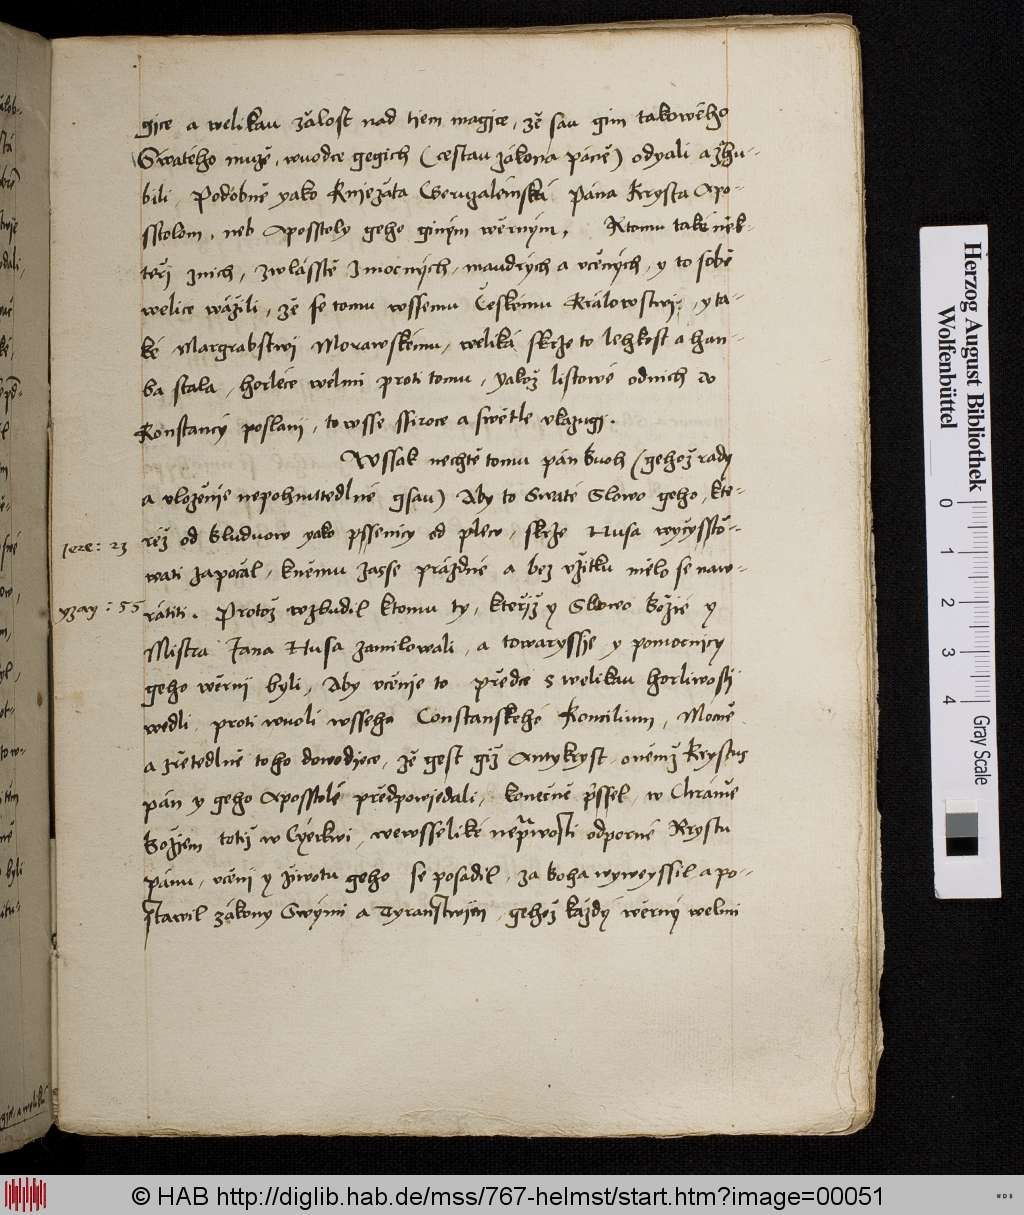 gice a welikau žalost nad tiem magice, že sau gim takowého
Swatého muže, wuodce gegich (cestau zákona páně) odyali a zhu-
bili, Podobně yako Kniežata Geruzalémská Pána Krysta Apo-
sstolom, neb Aposstoly geho giným wěrným, Ktomu také něk-
teři znich, zwlásstě zmocných, maudrých a učených, y to sobě
welice wážili, že se tomu wssemu Českému Králowstwj, y ta-
ké Margrabstwi Morawskému, weliká skrze to lehkost a han-
ba stala, horlece welmi proti tomu, yakož listowé odnich do
Konstancý poslani, to wsse ssiroce a swětle ukazugj.
Wssak nechtě tomu pán Buoh (gehož rady
a uloženie nepohnuttedlné gsau) Aby to Swaté Slowo geho, kte-
réž od bluduow yako pssenicy od plew, skrze Husa wyčyssťo-
Jere: 23
wati započal, knému zasse prázdné a bez užitku mělo se naw-
yzay: 55
rátiti. Protož wzbudil ktomu ty, kteřjž y Slowo Božié y
Mistra Jana Husa zamilowali, a towaryssie y pomocnicy
geho wěrni byli, Aby učenie to předce s welikau horliwosti
wedli proti wuoli wsseho Constanského Koncilium, Mocně
a zřetedlně toho dowodiece, že gest giž Antykryst, oněmž Krystus
pán y geho Aposstolé předpowjedali, konečně přssel, w Chrámě
Božiem totiž w Cýerkwi, wewsseliké neprawosti odporné Krystu
pánu, učeni y žiwotu geho se posadil, za boha wyweyssil a po-
stawil zákony Swými a Tyranstwijm, gehož každý wěrný welmi
Herzog August Bibliothek
Wolfenbüttel
0 1 2 3 4
Gray Scale
© HAB http://diglib.hab.de/mss/767-helmst/start.htm?image=00051